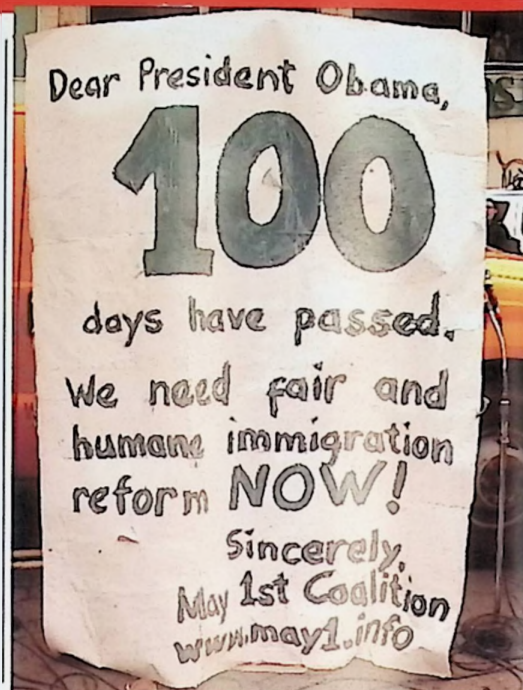 Dear President Obama,
100
days have passed.
We need fair and
humane immigration
reform NOW!
Sincerely,
May 1st Coalition
www.may1.info